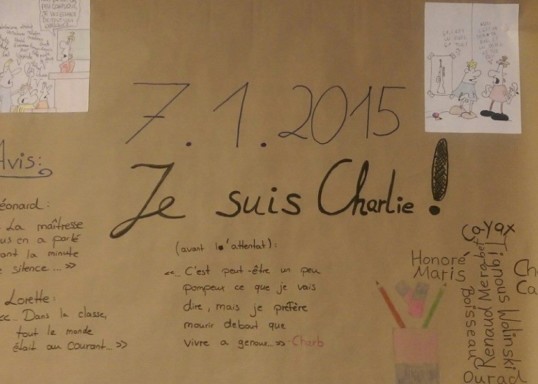 7.1.2015
Je suis Charlie!
Avis:
éonard:
La maîtresse
us en a parlé
ant la minute
e silence... >>
Lorette:
<< Dans la classe,
tout le monde
était au courant... >>
(avant l'attentat):
<< C'est peut-être un peu
pompeux ce que je vais
dire, mais je préfère
mourir debout que
vivre à genoux >> Charb
Honoré
Maris
Coyax
Tignous Wolinski
Renaud Mer
Boisseau
Ch
Ca
Ourad